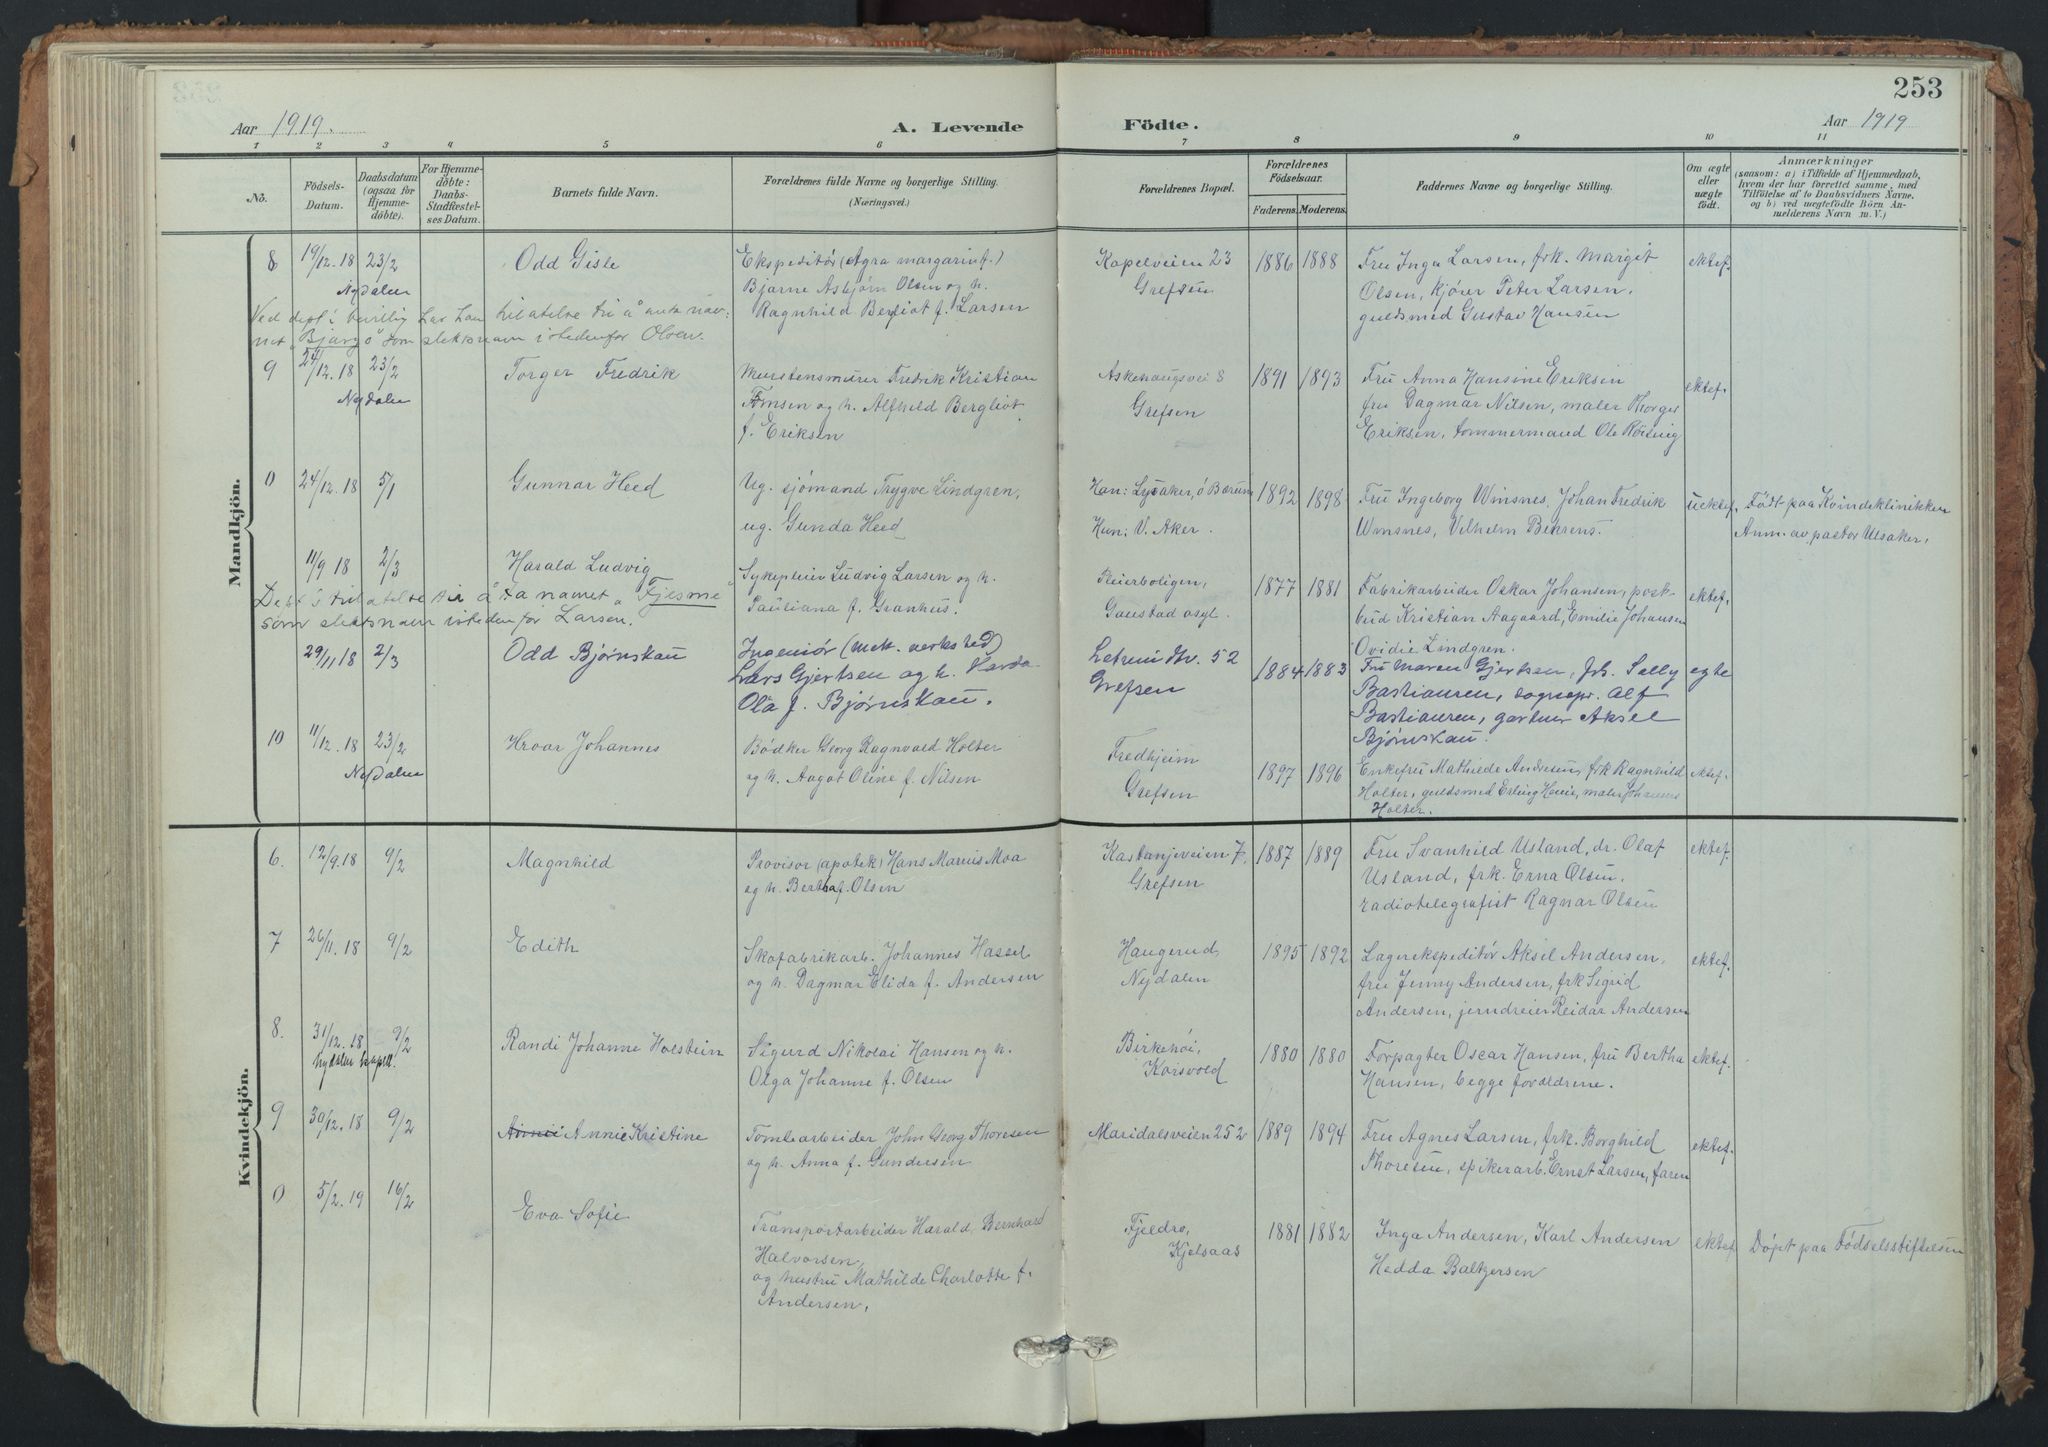 253
Aar 1919.
A. Levende
Födte.
Aar 1919
1 2 3 4 5 6 7 8 9 10 11
No.
Födsels-
Datum.
Daabsdatum
(ogsaa for
Hjemme-
döbte).
For Hjemme-
döbte:
Daabs-
Stadfæstel-
ses Datum.
Barnets fulde Navn.
Forældrenes fulde Navne og borgerlige Stilling.
(Næringsvei.)
Forældrenes Bopæl.
Forældrenes
Födselsaar.
Faderens. Moderens.
Faddernes Navne og borgerlige Stilling.
Om ægte
eller
uægte
födt.
Anmærkninger
(saasom: a) i Tilfælde af Hjemmedaab,
hvem der har forrettet samme, med
Tilföielse af to Daabsvidners Navne.
og b) ved uægtefödte Börn An-
melderens Navn m. V.)
Mandkjön.
8 19/12.18 23/2 Odd Gisle
Nydalen
Ekspeditör (Agra margarinf.)
Bjarne Asbjörn Olsen og h.
Ragnhild Berljot f. Larsen
Kapelveien 23
Grefsen
1886 1888
Fru Inga Larsen, frk. Margit
Olsen, kjörer Peter Larsen.
guldsmed Gustav Hansen
ektef.
Ved dept's bevillig har han tilatelse til å anta nav-
net "Bjargö" som slektsnavn istedenfor Olsen.
9 24/12.18 23/2 Torger Fredrik
Nydalen
Murstensmurer Fredrik Kristian
Tomsen og h. Alfhild Bergliot
f. Eriksen
Askehaugsvei 8
Grefsen
1891 1893
Fru Anna Hansine Eriksen
fru Dagmar Nilsen, maler Thorger
Eriksen, tommermand Ole Röisng
ektef.
0 24/12.18 5/1 Gunnar Heed
Ug. sjömand Trygve Lindgren,
ug. Gunda Heed
Han: Lysaker, ö Bærum
Hun: V. Aker.
1892 1898
Fru Ingeborg Winsnes, Johan Fredrik
Winsnes, Vilhelm Behrens.
uektef.
Födt paa Kvindeklinikken
Anm. av pastor Ulsaker.
11/9 18 2/3 Harald Ludvig
Sykepleier Ludvig Larsen og h.
Pauliana f. Granhus.
Pleierboligen,
Gaustad asyl.
1877 1881
Fabrikarbeider Oskar Johansen, post-
bud Kristian Aagaard, Emilie Johansen
Ovidie Lindgren.
ektef.
Dept's tilatelse til å ta namet "Fjesme"
som slektsnavn isteden for Larsen.
29/11 18 2/3 Odd Bjørnskau
Ingeniör (mek. verksted)
Lars Gjertsen og h. Harda
Ola f. Bjørnskau.
52
Grefsen
1884 1883
Fru Maren Gjertsen, frk. Selly
Bastiansen, sognepr. Alf
Bastiansen, gartner Aksel
Bjørnskau.
egte
10 11/12.18 23/2 Hroar Johannes
Nydalen
Bödker Georg Ragnvald Holter
og h. Aagot Oline f. Nilsen
Fredhjeim
Grefsen
1897 1896
Enkefru Mathilde Andresen, frk Ragnhild
Holter, guldsmed Erling , maler Johannes
Holter.
ektef.
Kvindekjön.
6. 12/9.18 9/2 Magnhild
Provisor (apotek) Hans Marius Moa
og h. Bertha f. Olsen
Kastanjeveien 7
Grefsen
1887 1889
Fru Svanhild Usland, dr. Olaf
Usland, frk. Erna Olsen.
radiotelegrafist Ragnar Olsen
ektef.
7 26/11.18 9/2 Edith
Skofabrikarb. Johannes Hassel
og h. Dagmar Elida f. Andersen
Haugerud,
Nydalen
1895 1892
Lagerekspeditör Aksel Andersen,
fru Jenny Andersen, frk Sigrid
Andersen, jerndreier Reidar Andersen
ektef.
8. 31/12.18 9/2 Randi Johanne Holstein
Nydalen kapell.
Sigurd Nikolai Hansen og h.
Olga Johanne f. Olsen
Birkehöi,
Korsvold
1880 1880
Forpagter Oscar Hansen, fru Bertha
Hansen, begge forældrene.
ektef.
9 30/12.18 9/2 Annie Kristine
Tomtearbeider John Georg Thoresen
og h. Anna f. Gundersen
Maridalsveien 252
1889 1894
Fru Agnes Larsen, frk. Borghild
Thoresen, spikerarb. Ernst Larsen, faren
ektef.
0 5/2.19 16/2 Eva Sofie
Transportarbeider Harald Bernhard
Halvorsen,
og hustru Mathilde Charlotte f.
Andersen.
Fjeldro,
Kjelsaas
1881 1882
Inga Andersen, Karl Andersen
Hedda Baltzersen
ektef
Döpt paa Födselsstiftelsen